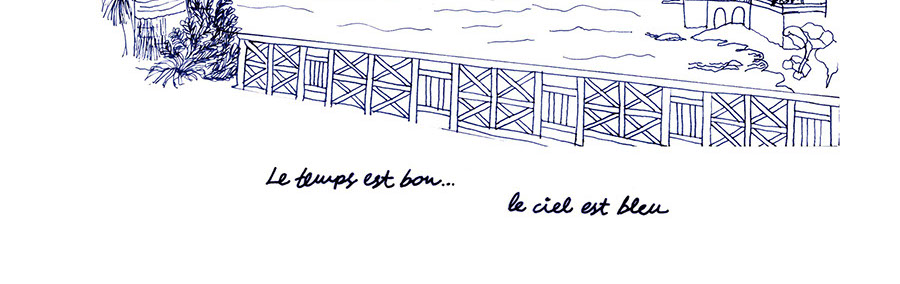 Le temps est bon...
le ciel est bleu